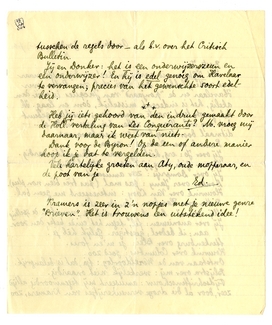 tusschen de regels door – als b.v. over het Critisch
Bulletin.
Zij en Donker: het is een onderwijzerszum en
een onderwijzer! En hij is edel genoeg om Havelaar
te vervangen; precies van het gewenschte soort edel-
heid.
Heb jij iets gehoord van den indruk gemaakt door
de Holl. vertaling van Les Conquérants? Ab. vroeg mij
daarnaar, maar ik weet van niets.
Dank voor de Byron! Op de een of andere manier
hoop ik je dat te vergelden.
Veel hartelijke groeten aan Aty, oude mofferaar, en
de poot van je
Ed.
Framers is zeer in z'n nopjes met je nieuwe genre
"brieven". Het is trouwens een uitstekend idee!